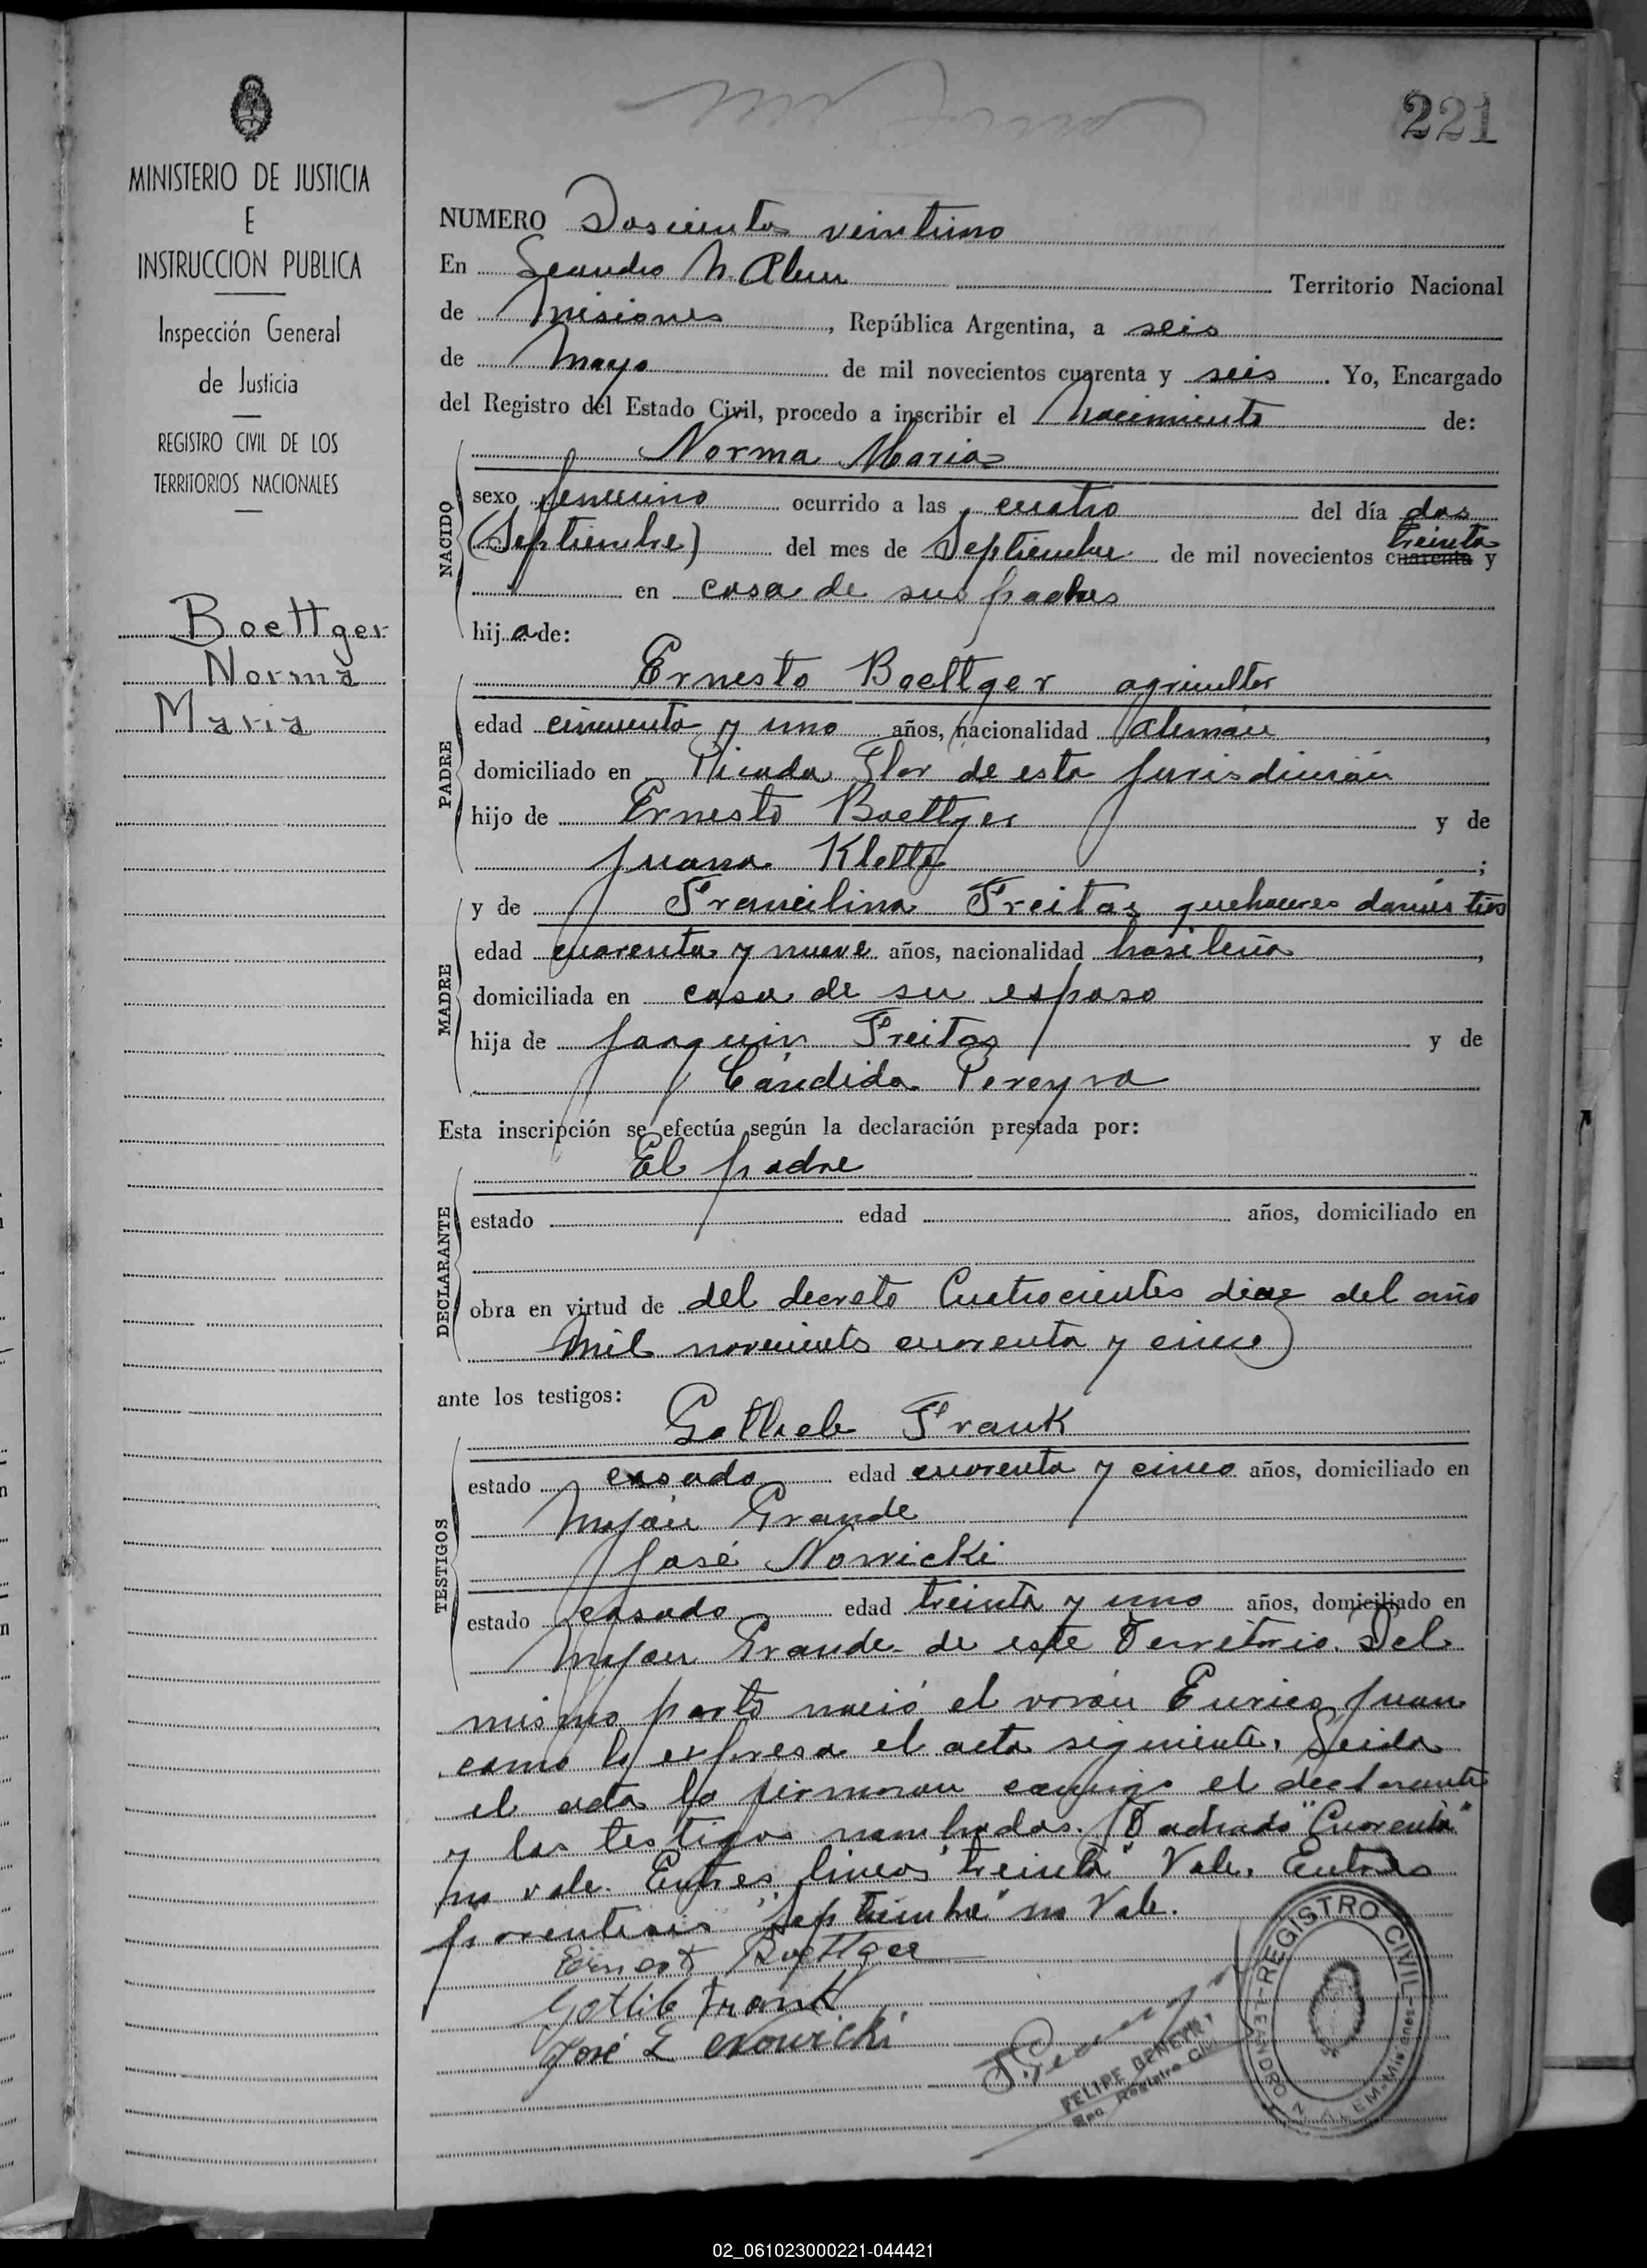 221
MINISTERIO DE JUSTICIA
E
INSTRUCCION PUBLICA
Inspección General
de Justicia
REGISTRO CIVIL DE LOS
TERRITORIOS NACIONALES
Boettger
Norma
Maria
NUMERO Doscientos veintiuno
En Leandro N. Alem Territorio Nacional
de Misiones, República Argentina, a seis
de Mayo de mil novecientos cuarenta y seis. Yo, Encargado
del Registro del Estado Civil, procedo a inscribir el Nacimiento de:
Norma Maria
NACIDO
sexo femenino ocurrido a las cuatro del día dos
treinta
(Septiembre) del mes de Septiembre de mil novecientos cuarenta y
en casa de sus padres
hija de:
PADRE
Ernesto Boettger agricultor
edad cincuenta y uno años, nacionalidad Alemán,
domiciliado en Picada Flor de esta jurisdicción
hijo de Ernesto Boettger y de
Juana Klettg;
MADRE
y de Francilina Freitas quehaceres domésticos
edad cuarenta y nueve años, nacionalidad brasileña,
domiciliada en casa de su esposo
hija de Joaquin Freitas y de
Cándida Pereyra
Esta inscripción se efectúa según la declaración prestada por:
DECLARANTE
El padre
estado edad años, domiciliado en
obra en virtud de del decreto Cuatrocientos diez del año
mil novecientos cuarenta y cinco)
ante los testigos:
TESTIGOS
Gotlieb Frank
estado casado edad cuarenta y cinco años, domiciliado en
Mojón Grande
José Nowicki
estado casado edad treinta y uno años, domiciliado en
Mojon Grande de este Territorio. Del
mismo parto nació el varón Eurico Juan
como lo expresa el acta siguiente. Leida
el acta la firmaron conmigo el declarante
y los testigos nombrados. Tachado "Cuarenta"
no vale. Entres lineas "treinta" Vale. Entres
parentesis "Septiembre" no Vale.
Ernest Boettger
Gotlib Frank
José L Nowicki
FELIPE BENEYR
Enc Registro Civil
REGISTRO CIVIL
LEANDRO N. ALEM-Misiones-
02_061023000221-044421